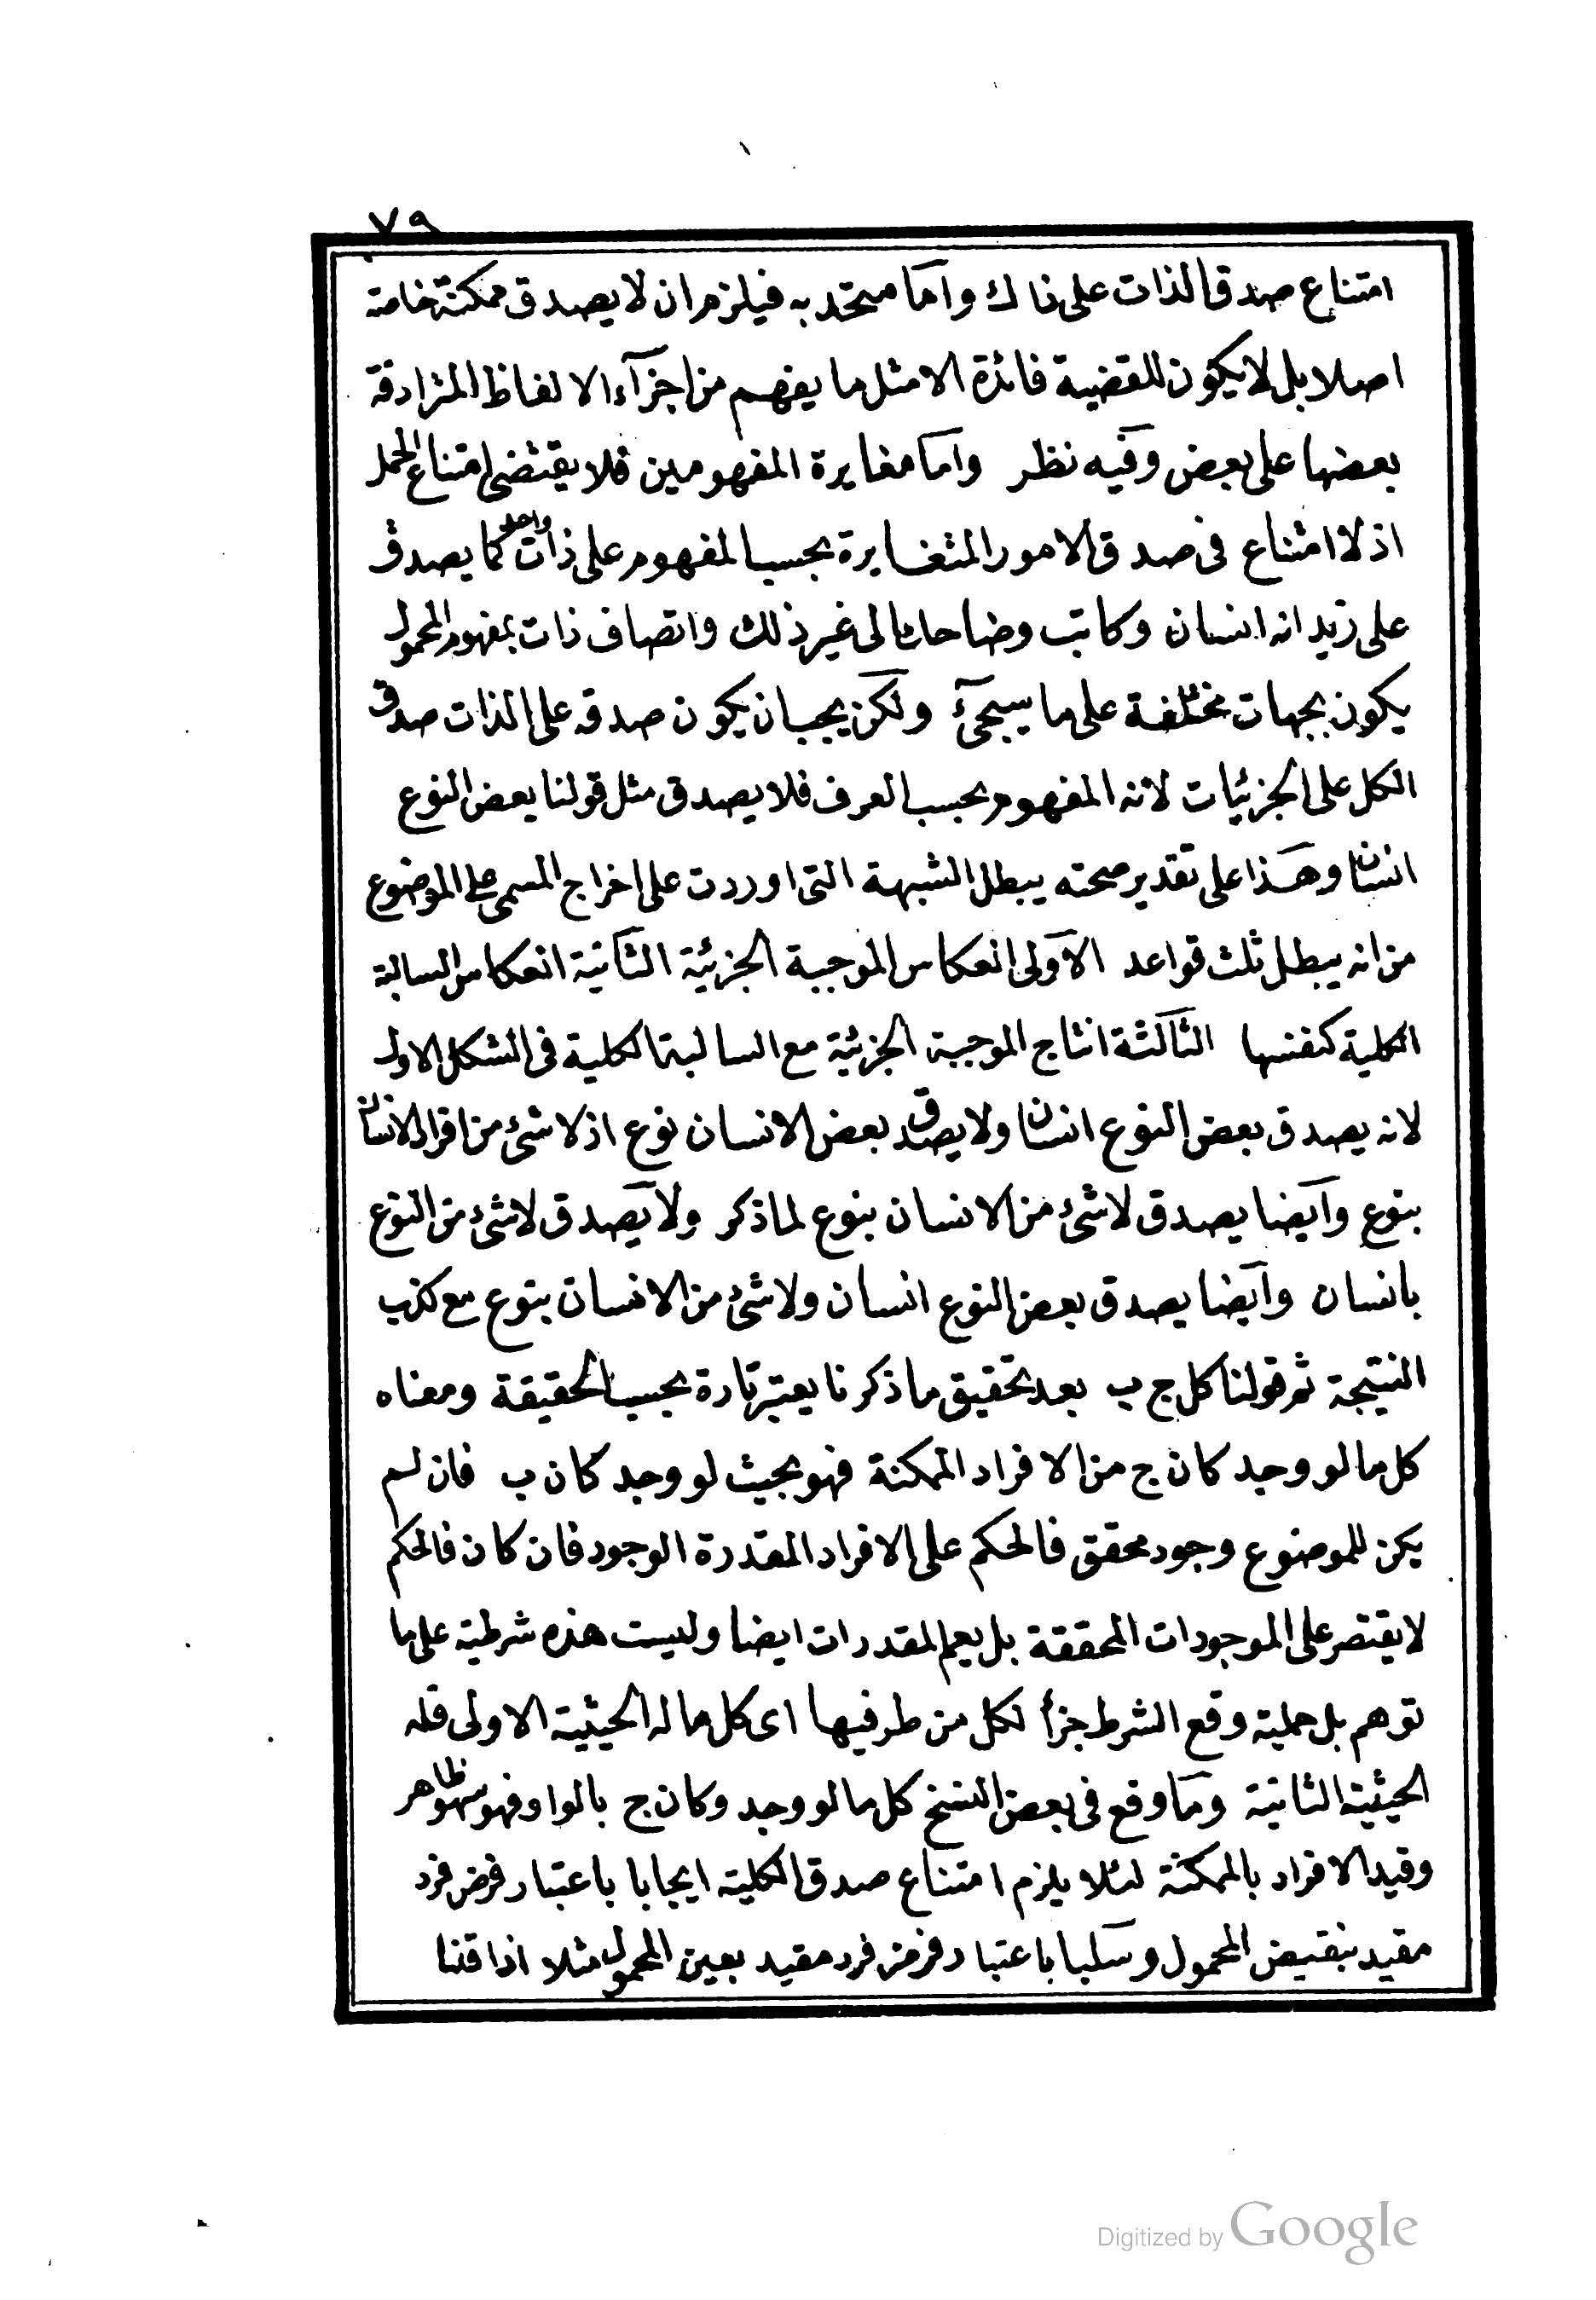 ٧٩
امتناع صدق الذات على ذاك واما متحد به فيلزم ان لا يصدق ممكنة خاصة
اصلا بل لا يكون للقضية فائدة الا مثل ما يفهم من اجزآء الالفاظ المترادفة
بعضها على بعض وفيه نظر واما مغايرة المفهومين فلا يقتضى امتناع الحمل
اذ لا امتناع فى صدق الامور المتغايرة بحسب المفهوم على ذات واحد كما يصدق
على زيد انه انسان وكاتب وضاحك الى غير ذلك واتصاف ذات بمفهوم المحمول
يكون بجهات مختلفة على ما سيجئ ولكن يجب ان يكون صدقه على الذات صدق
الكل على الجزئيات لانه المفهوم بحسب العرف فلا يصدق مثل قولنا بعض النوع
انسان وهذا على تقدير صحته يبطل الشبهة التى اوردت على اخراج المسمى على الموضوع
من انه يبطل ثلث قواعد الاولى انعكاس الموجبة الجزئية الثانية انعكاس السالبة
الكلية كنفسها الثالثة انتاج الموجبة الجزئية مع السالبة الكلية فى الشكل الاول
لانه يصدق بعض النوع انسان ولا يصدق بعض الانسان نوع اذ لا شئ من افراد الانسان
بنوع وايضا يصدق لا شئ من الانسان بنوع لما ذكر ولا يصدق لا شئ من النوع
بانسان وايضا يصدق بعض النوع انسان ولا شئ من الانسان بنوع مع كذب
النتيجة ثم قولنا كل ج ب بعد تحقيق ما ذكرنا يعتبر تارة بحسب الحقيقة ومعناه
كل ما لو وجد كان ج من الافراد الممكنة فهو بحيث لو وجد كان ب فان لم
يكن للموضوع وجود محقق فالحكم على الافراد المقدرة الوجود فان كان فالحكم
لا يقتصر على الموجودات المحققة بل يعم المقدرات ايضا وليست هذه شرطية على ما
توهم بل حملية وقع الشرط جزأ لكل من طرفيها اى كل ما له الحيثية الاولى فله
الحيثية الثانية وما وقع فى بعض النسخ كل ما لو وجد وكان ج بالواو فهو سهو ظاهر
وقيد الافراد بالممكنة لئلا يلزم امتناع صدق الكلية ايجابا باعتبار فرض فرد
مقيد بنقيض المحمول وسلبا باعتبار فرض فرد مقيد بعين المحمول مثلا اذا قلنا
Digitized by Google